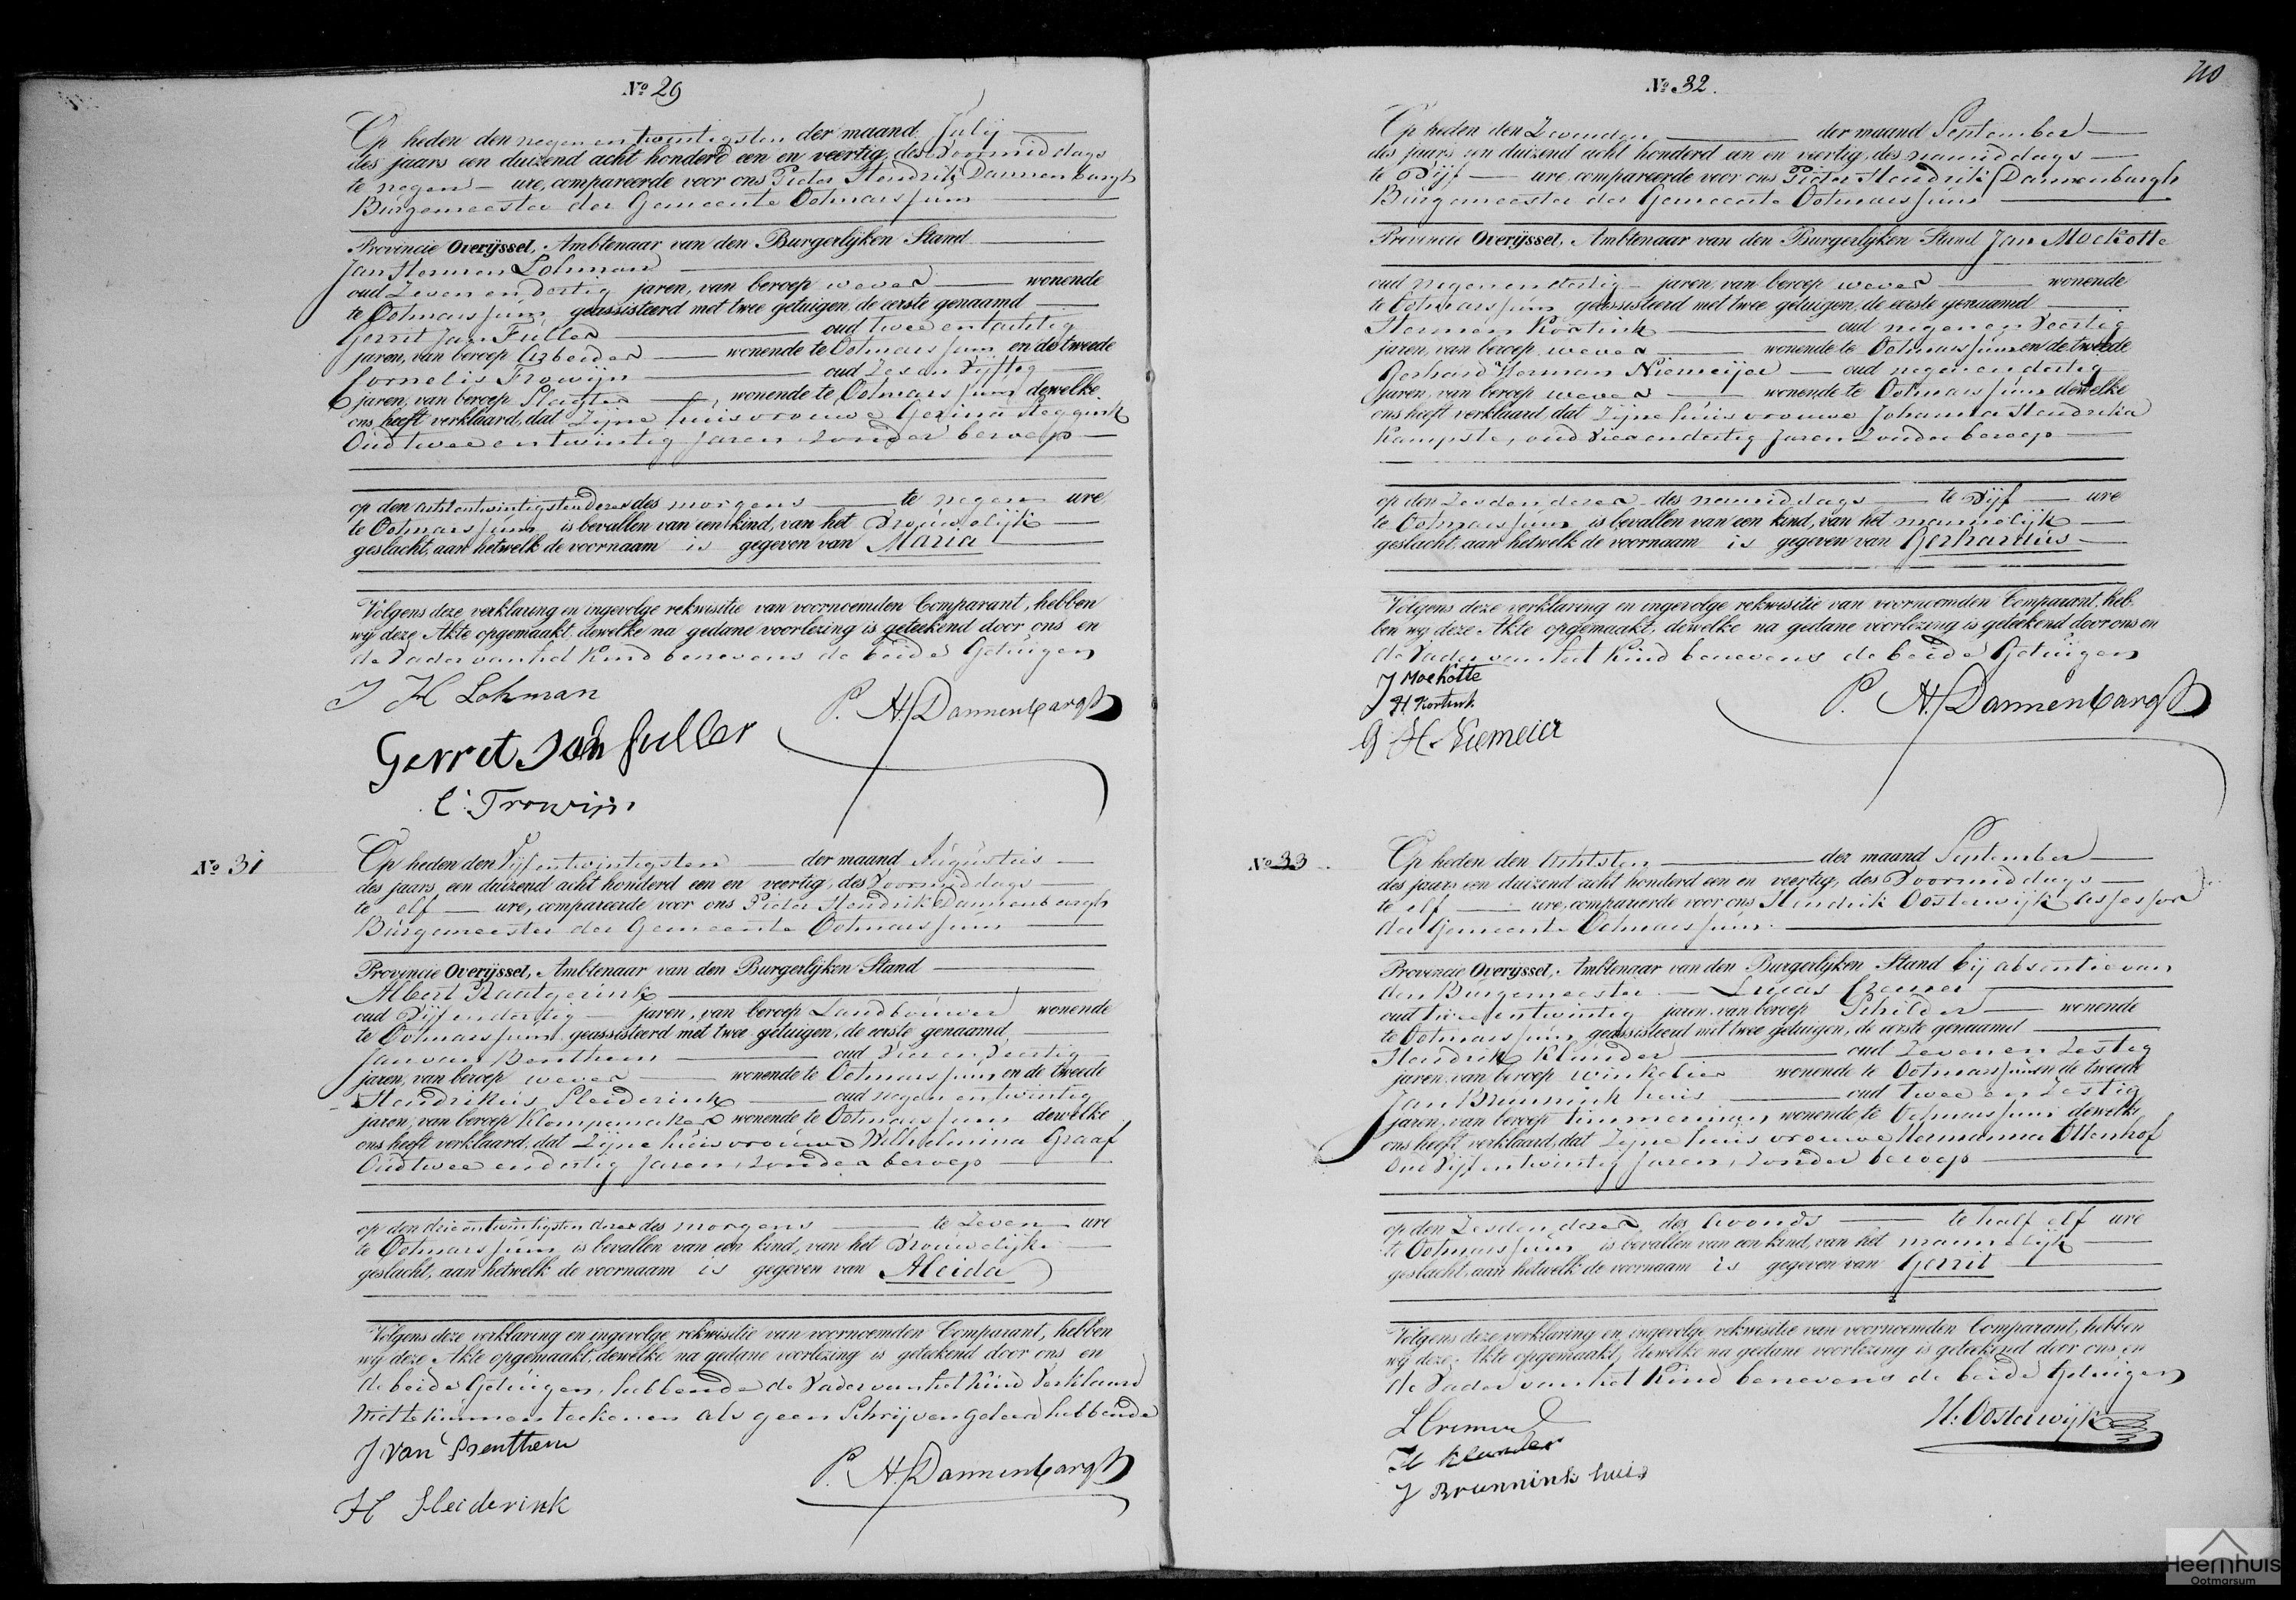 No 29
Op heden den negen en twintigsten der maand Julij
des jaars een duizend acht honderd een en veertig, des Voormiddags
te negen ure, compareerde voor ons Pieter Hendrik Dannenbargh
Burgemeester der Gemeente Ootmarssum
Provincie Overijssel, Ambtenaar van den Burgerlijken Stand
Jan Hermen Lohman
oud Zeven en dertig jaren, van beroep wever wonende
te Ootmarssum geassisteerd met twee getuigen, de eerste genaamd
Gerrit Jan Fuller oud twee en tachtig
jaren, van beroep Arbeider wonende te Ootmarssum en de tweede
Cornelis Trowijn oud Zes en Vijftig
jaren, van beroep Slagter, wonende te Ootmarssum dewelke
ons heeft verklaard, dat Zijne huisvrouwe Gezina Heggink
Oud twee en twintig Jaren, zonder beroep
op den achtentwintigsten dezer des morgens te negen ure
te Ootmarssum is bevallen van een kind, van het Vrouwelijk
geslacht, aan hetwelk de voornaam is gegeven van Maria
Volgens deze verklaring en ingevolge rekwisitie van voornoemden Comparant, hebben
wij deze Akte opgemaakt, dewelke na gedane voorlezing is geteekend door ons en
de Vader van het Kind benevens de beide Getuigen
J H Lohman
P. H. Dannenbargh
Gerret Jan fuller
C. Trowijn
No 31
Op heden den Vijfentwintigsten der maand Augustus
des jaars, een duizend acht honderd een en veertig, des Voormiddags
te elf ure, compareerde voor ons Pieter Hendrik Dannenbargh
Burgemeester der Gemeente Ootmarssum
Provincie Overijssel, Ambtenaar van den Burgerlijken Stand
Albert Raatgerink
oud Vijfendertig jaren, van beroep Landbouwer wonende
te Ootmarssum geassisteerd met twee getuigen, de eerste genaamd
Jan van Benthem oud Vier en Veertig
jaren, van beroep wever wonende te Ootmarssum en de tweede
Hendrikus Sleiderink oud negen entwintig
jaren, van beroep Klompemaker wonende te Ootmarssum dewelke
ons heeft verklaard, dat Zijne huisvrouwe Wilhelmina Graaf
Oud twee en dertig Jaren, zonder beroep
op den drieentwintigsten dezer des morgens te Zeven ure
te Ootmarssum is bevallen van een kind, van het Vrouwelijke
geslacht, aan hetwelk de voornaam is gegeven van Aleida
Volgens deze verklaring en ingevolge rekwisitie van voornoemden Comparant, hebben
wij deze Akte opgemaakt, dewelke na gedane voorlezing is geteekend door ons en
de beide Getuigen, hebbende de Vader van het Kind Verklaard
Niet te kunnen teekenen als geen Schrijven geleerd hebbende
J Van Benthem
P. H. Dannenbargh
H Sleiderink
No 32.
110
Op heden den Zevenden der maand September
des jaars een duizend acht honderd een en veertig, des namiddags
te Vijf ure, compareerde voor ons Pieter Hendrik Dannenburgh
Burgemeester der Gemeente Ootmarssum
Provincie Overijssel, Ambtenaar van den Burgerlijken Stand Jan Mockotte
oud negenendertig jaren, van beroep wever wonende
te Ootmarssum geassisteerd met twee getuigen, de eerste genaamd
Hermen Kortink oud negen en Veertig
jaren, van beroep wever wonende te Ootmarssum en de tweede
Gerhard Herman Niemeijer oud negenendertig
jaren, van beroep wever wonende te Ootmarssum dewelke
ons heeft verklaard dat Zijne huisvrouwe Johanna Hendrika
Kampste, oud Vier en dertig Jaren Zonder beroep
op den Zesden dezer des namiddags te Vijf ure
te Ootmarssum is bevallen van een kind, van het mannelijk
geslacht, aan hetwelk de voornaam is gegeven van Gerhardus
Volgens deze verklaring en ingevolge rekwisitie van voornoemden Comparant, heb
ben wij deze Akte opgemaakt, dewelke na gedane voorlezing is geteekend door ons en
de Vader van het Kind benevens de beide Getuigen
J Mockotte
H. Kortink
P. H. Dannenbargh
G H. Niemeier
No 33
Op heden den Achtsten der maand September
des jaars een duizend acht honderd een en veertig, des Voormiddags
te elf ure, compareerde voor ons Hendrik Oosterwijk Assessor
der Gemeente Ootmarssum
Provincie Overijssel, Ambtenaar van den Burgerlijken Stand bij absentie van
den Burgemeester Lucas Cremer
oud tweeentwintig jaren, van beroep Schilder wonende
te Ootmarssum geassisteerd met twee getuigen, de eerste genaamd
Hendrik Klunder oud Zeven en Zestig
jaren, van beroep winkelier wonende te Ootmarssum en de tweede
Jan Brunnink huis oud twee en Zestig
jaren, van beroep timmerman wonende te Ootmarssum dewelke
ons heeft verklaard, dat Zijne huisvrouwe Hermanna Ottenhof
Oud Vijf entwintig Jaren, zonder beroep
op den Zesden dezer des Avonds te half elf ure
te Ootmarssum is bevallen van een kind, van het mannelijk
geslacht, aan hetwelk de voornaam is gegeven van Gerrit
Volgens deze verklaring en ingevolge rekwisitie van voornoemden Comparant, hebben
wij deze Akte opgemaakt, dewelke na gedane voorlezing is geteekend door ons en
de Vader van het Kind benevens de beide Getuigen
L Cremer
H. Oosterwijk
H Klunder
J Brunnink huis
Heemhuis
Ootmarsum